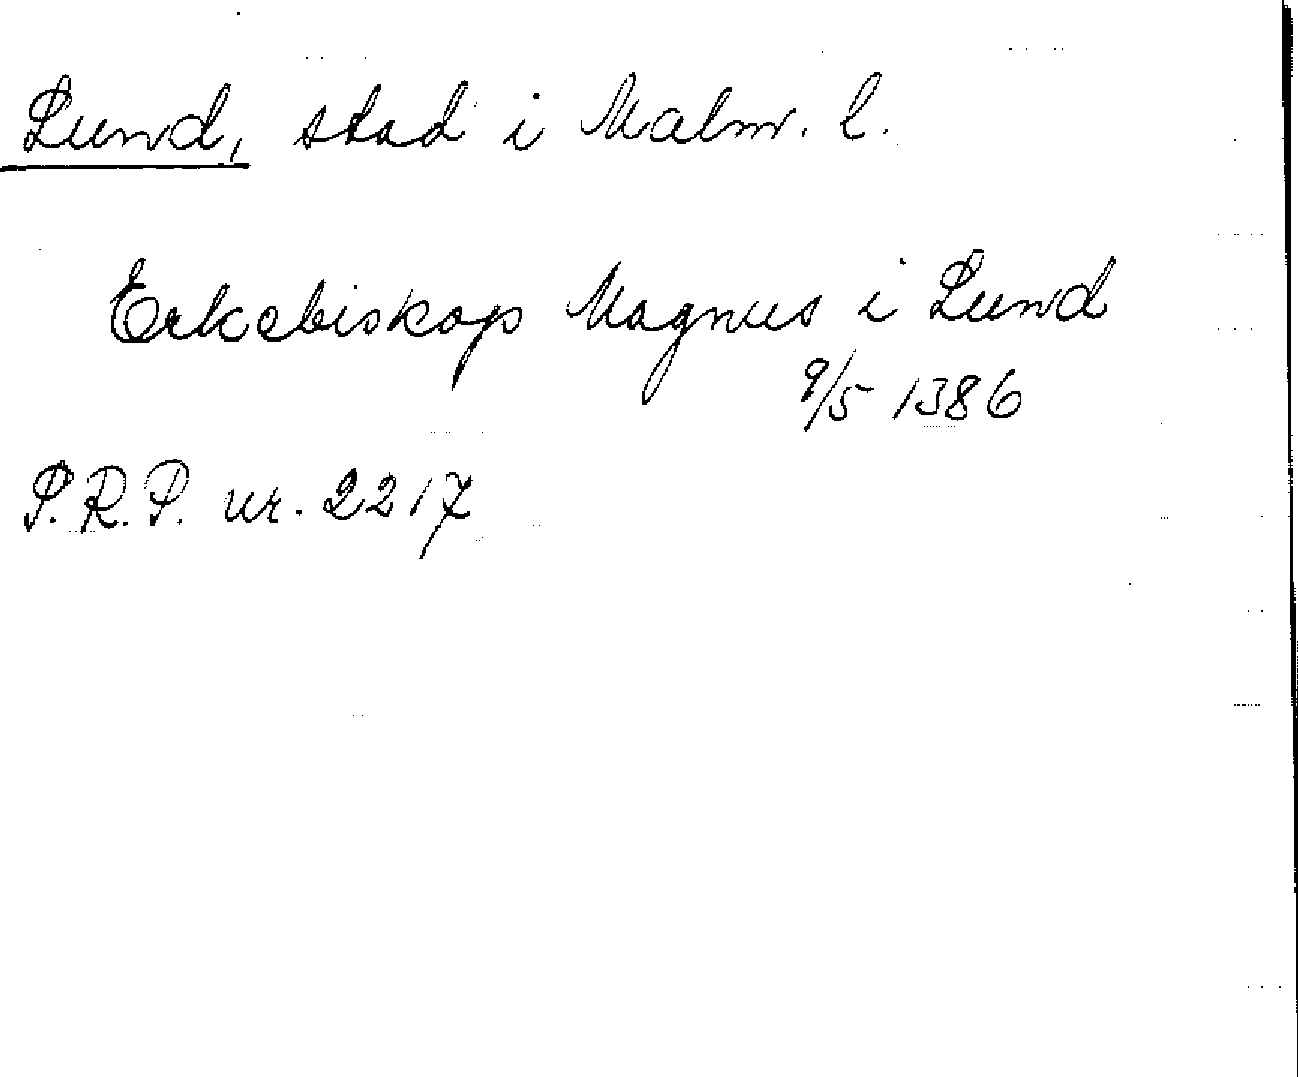 Lund, stad i Malm. l.
Erkebiskop Magnus i Lund
9/5 1386
S.R.P. nr. 2217